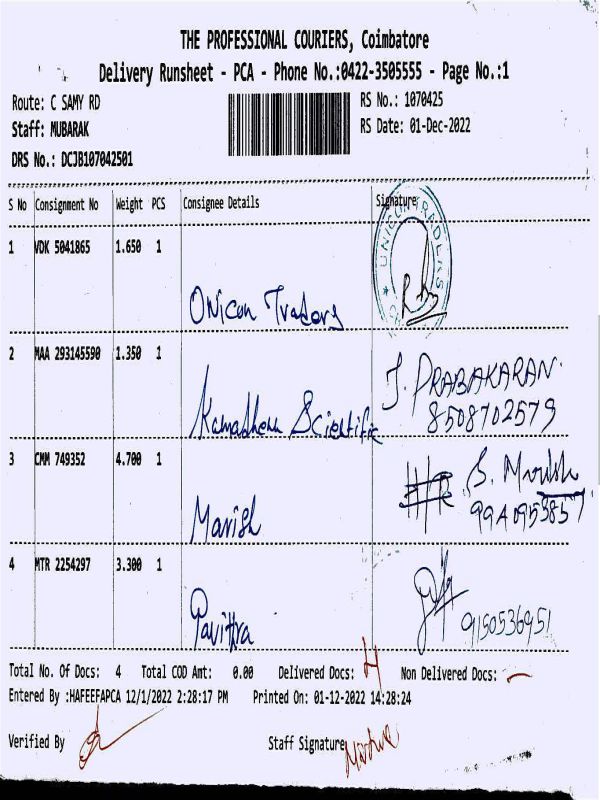 THE PROFESSIONAL COURIERS, Coimbatore
Delivery Runsheet - PCA - Phone No.:0422-3505555 - Page No.:1
Route: C SAMY RD
RS No.: 1070425
Staff: MUBARAK
RS Date: 01-Dec-2022
DRS No.: DCJB107042501
S No Consignment No Weight PCS Consignee Details Signature
1 VDK 5041865 1.650 1
UNICON TRADERS
Onicon Traders
2 MAA 293145590 1.350 1
J. PRABAKARAN.
8508702579
Kamadhenu Scientific
3 CMM 749352 4.700 1
S. Marish
Marish
4 MTR 2254297 3.300 1
9150536951
Pavithra
Total No. Of Docs: 4 Total COD Amt: 0.00 Delivered Docs: 4 Non Delivered Docs: -
Entered By :HAFEEFAPCA 12/1/2022 2:28:17 PM Printed On: 01-12-2022 14:28:24
Verified By Staff Signature